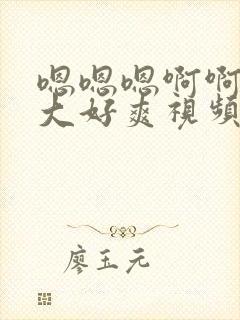 嗯嗯嗯啊啊
大好爽視頻
廖玉元